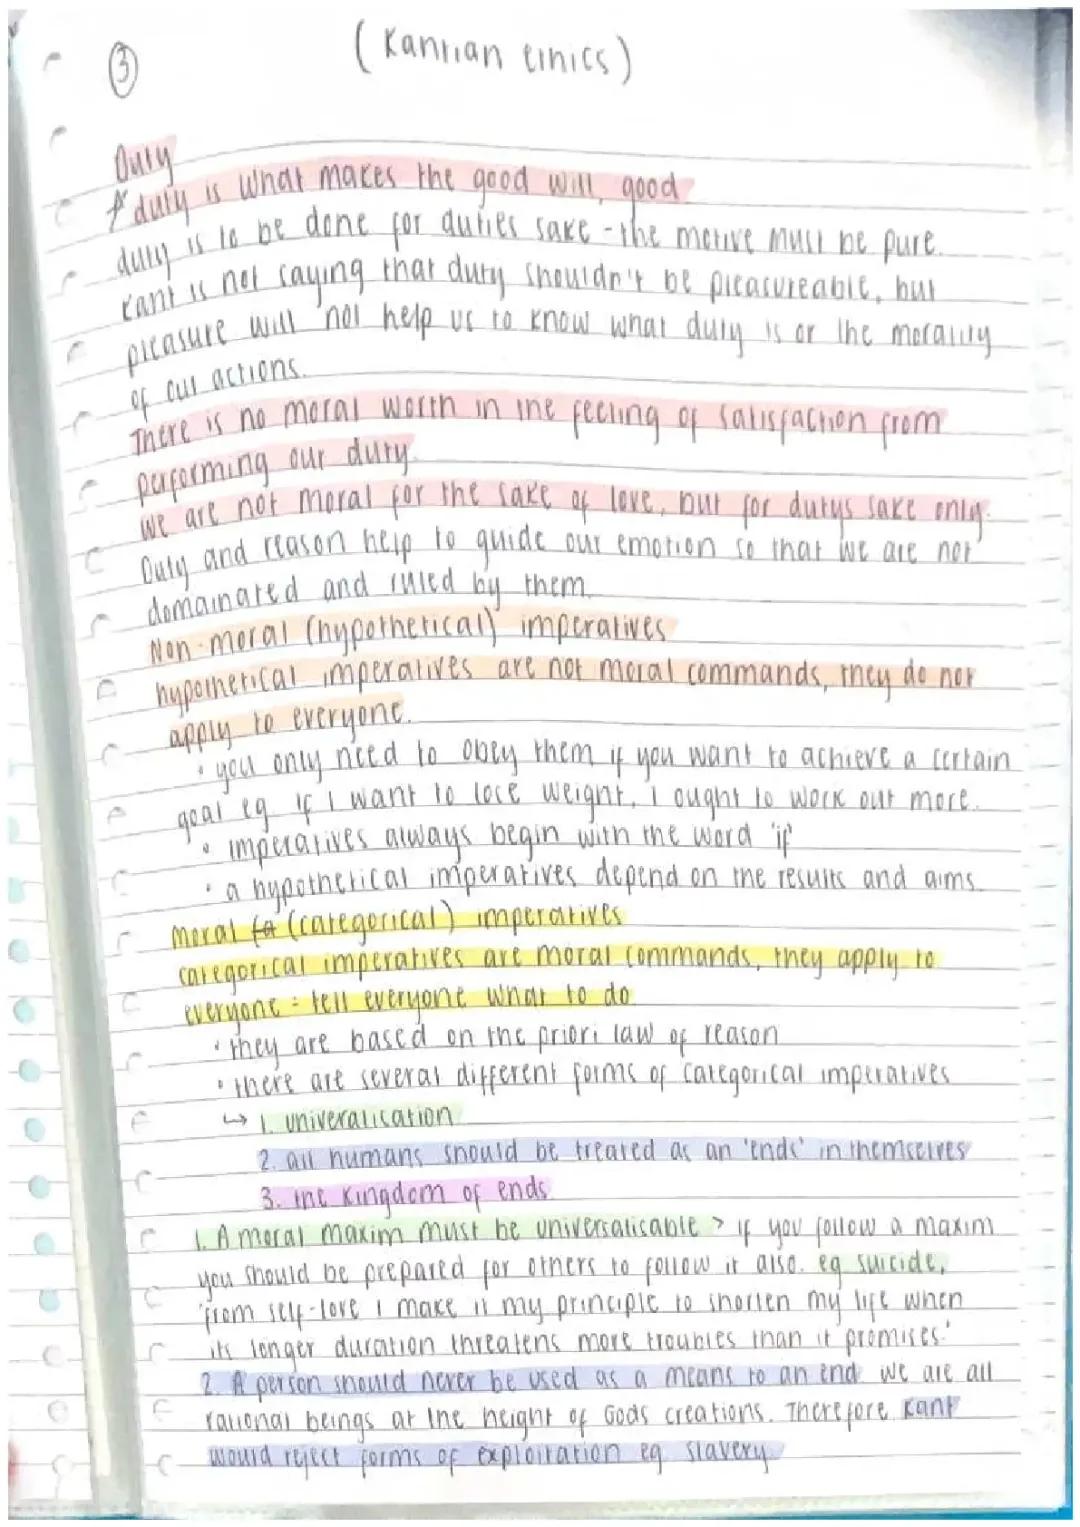 ③ (Kantian Ethics)
Duty
* duty is what makes the good will, good
duty is to be done for duties sake - the motive must be pure.
Kant is not saying that duty shouldn't be pleasureable, but
pleasure will not help us to know what duty is or the morality
of our actions.
There is no moral worth in the feeling of satisfaction from
performing our duty.
We are not moral for the sake of love, but for dutys sake only.
Duty and reason help to guide our emotion so that we are not
domainated and ruled by them.
Non-moral (hypothetical) imperatives
hypothetical imperatives are not moral commands, they do not
apply to everyone.
• you only need to obey them if you want to achieve a certain
goal eg if I want to lose weight, I ought to work out more.
• imperatives always begin with the word 'if'
• a hypothetical imperatives depend on the results and aims.
moral (categorical) imperatives
categorical imperatives are moral commands, they apply to
everyone = tell everyone what to do
• they are based on the priori law of reason
• there are several different forms of categorical imperatives
↪ 1. univeralisation
2. all humans should be treated as an 'ends' in themselves
3. the Kingdom of ends
1. A moral maxim must be universalisable > if you follow a maxim
you should be prepared for others to follow it also. eg suicide,
'from self-love I make it my principle to shorten my life when
its longer duration threatens more troubles than it promises.'
2. A person should never be used as a means to an end we are all
rational beings at the height of Gods creations. Therefore Kant
would reject forms of exploitation eg slavery